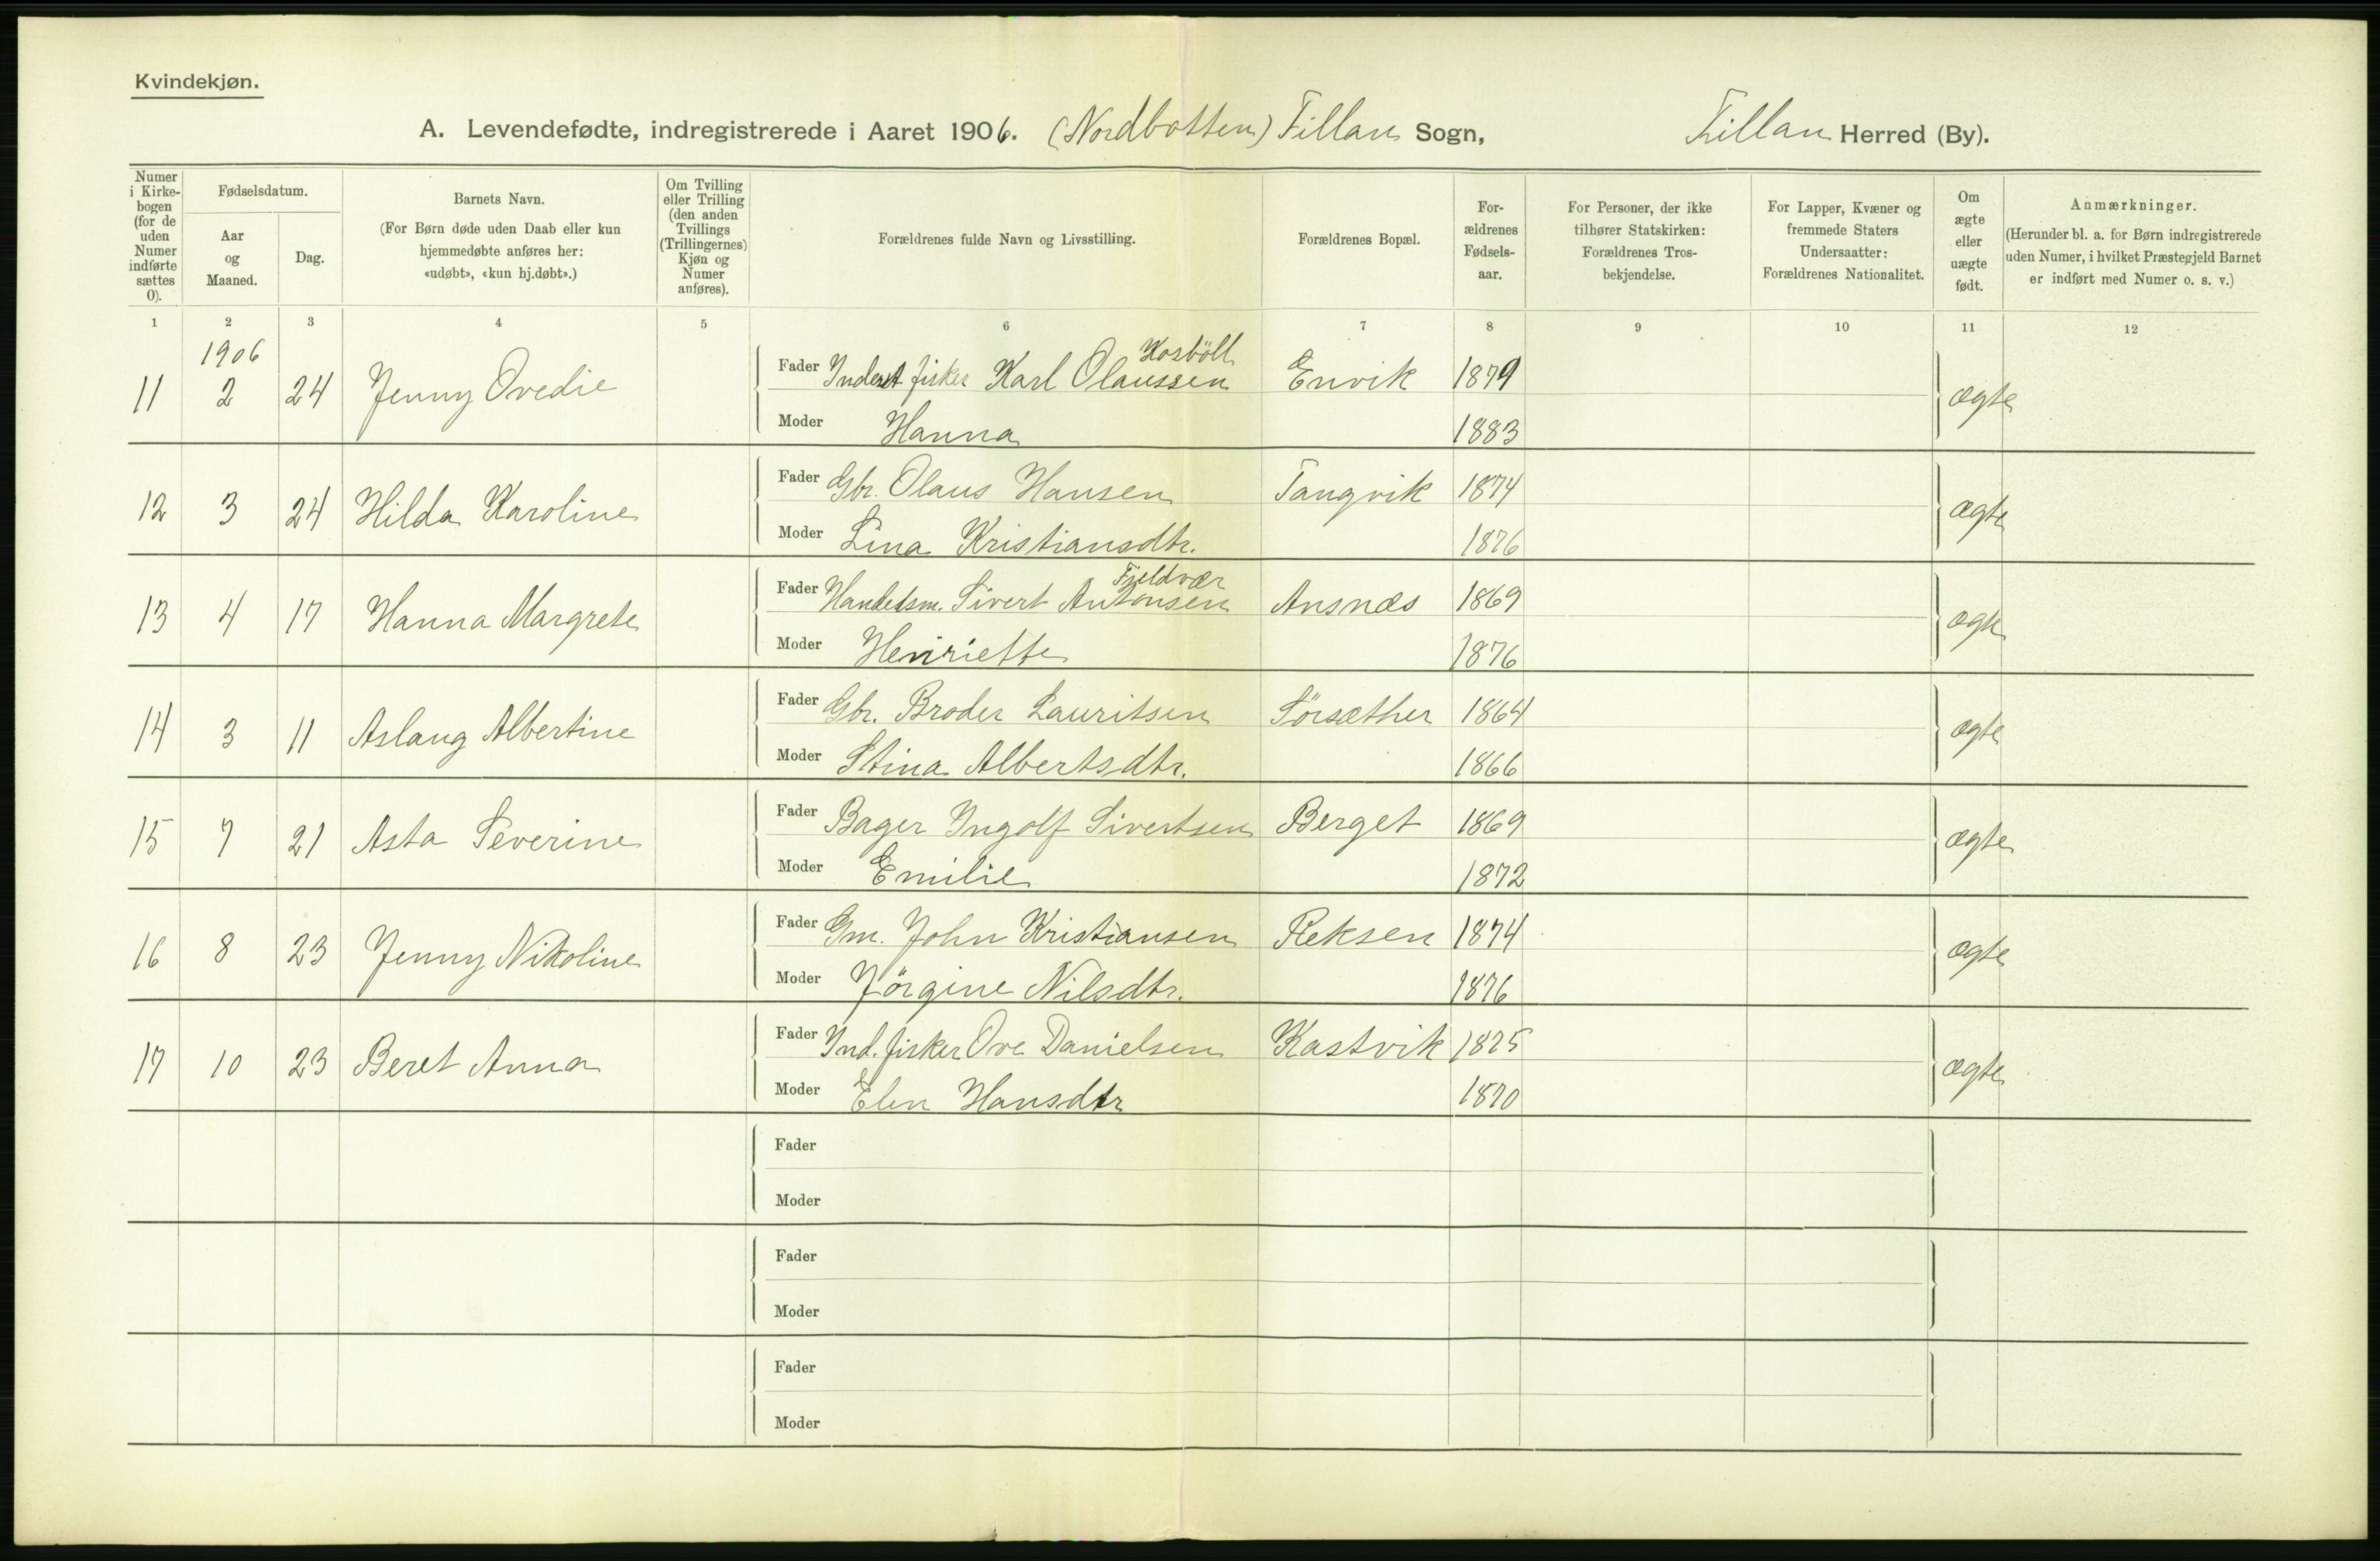 Kvindekjøn.
A. Levendefødte, indregistrerede i Aaret 1906. (Nordbotten) Fillan Sogn, Fillan Herred (By).
Numer i Kirkebogen (for de uden Numer indførte sættes 0).
Fødselsdatum.
Aar og Maaned.
Dag.
Barnets Navn.
(For Børn døde uden Daab eller kun hjemmedøbte anføres her: «udøbt», «kun hj.døbt».)
Om Tvilling eller Trilling (den anden Tvillings (Trillingernes) Kjøn og Numer anføres).
Forældrenes fulde Navn og Livsstilling.
Forældrenes Bopæl.
Forældrenes Fødselsaar.
For Personer, der ikke tilhører Statskirken: Forældrenes Trosbekjendelse.
For Lapper, Kvæner og fremmede Staters Undersaatter: Forældrenes Nationalitet.
Om ægte eller uægte født.
Anmærkninger.
(Herunder bl. a. for Børn indregistrerede uden Numer, i hvilket Præstegjeld Barnet er indført med Numer o. s. v.)
1 2 3 4 5 6 7 8 9 10 11 12
1906
11 2 24 Jenny Ovedie Fader fisker Karl Olaussen Kosböll Envik 1879 ægte
Moder Hanna 1883
12 3 24 Hilda Karoline Fader Gbr. Olaus Hansen Tangvik 1874 ægte
Moder Lina Kristiansdtr. 1876
13 4 17 Hanna Margrete Fader Handelsm. Sivert Antonsen Fjeldvær Ansnæs 1869 ægte
Moder Henriette 1876
14 3 11 Aslaug Albertine Fader Gbr. Broder Lauritsen Sörsæther 1864 ægte
Moder Stina Albertsdtr. 1866
15 7 21 Asta Severine Fader Bager Ingolf Sivertsen Berget 1869 ægte
Moder Emilie 1872
16 8 23 Jenny Nikoline Fader Gm. John Kristiansen Reksen 1874 ægte
Moder Jörgine Nilsdtr. 1876
17 10 23 Beret Anna Fader Ind. fisker Ove Danielsen Kastvik 1875 ægte
Moder Elen Hansdtr 1870
Fader
Moder
Fader
Moder
Fader
Moder